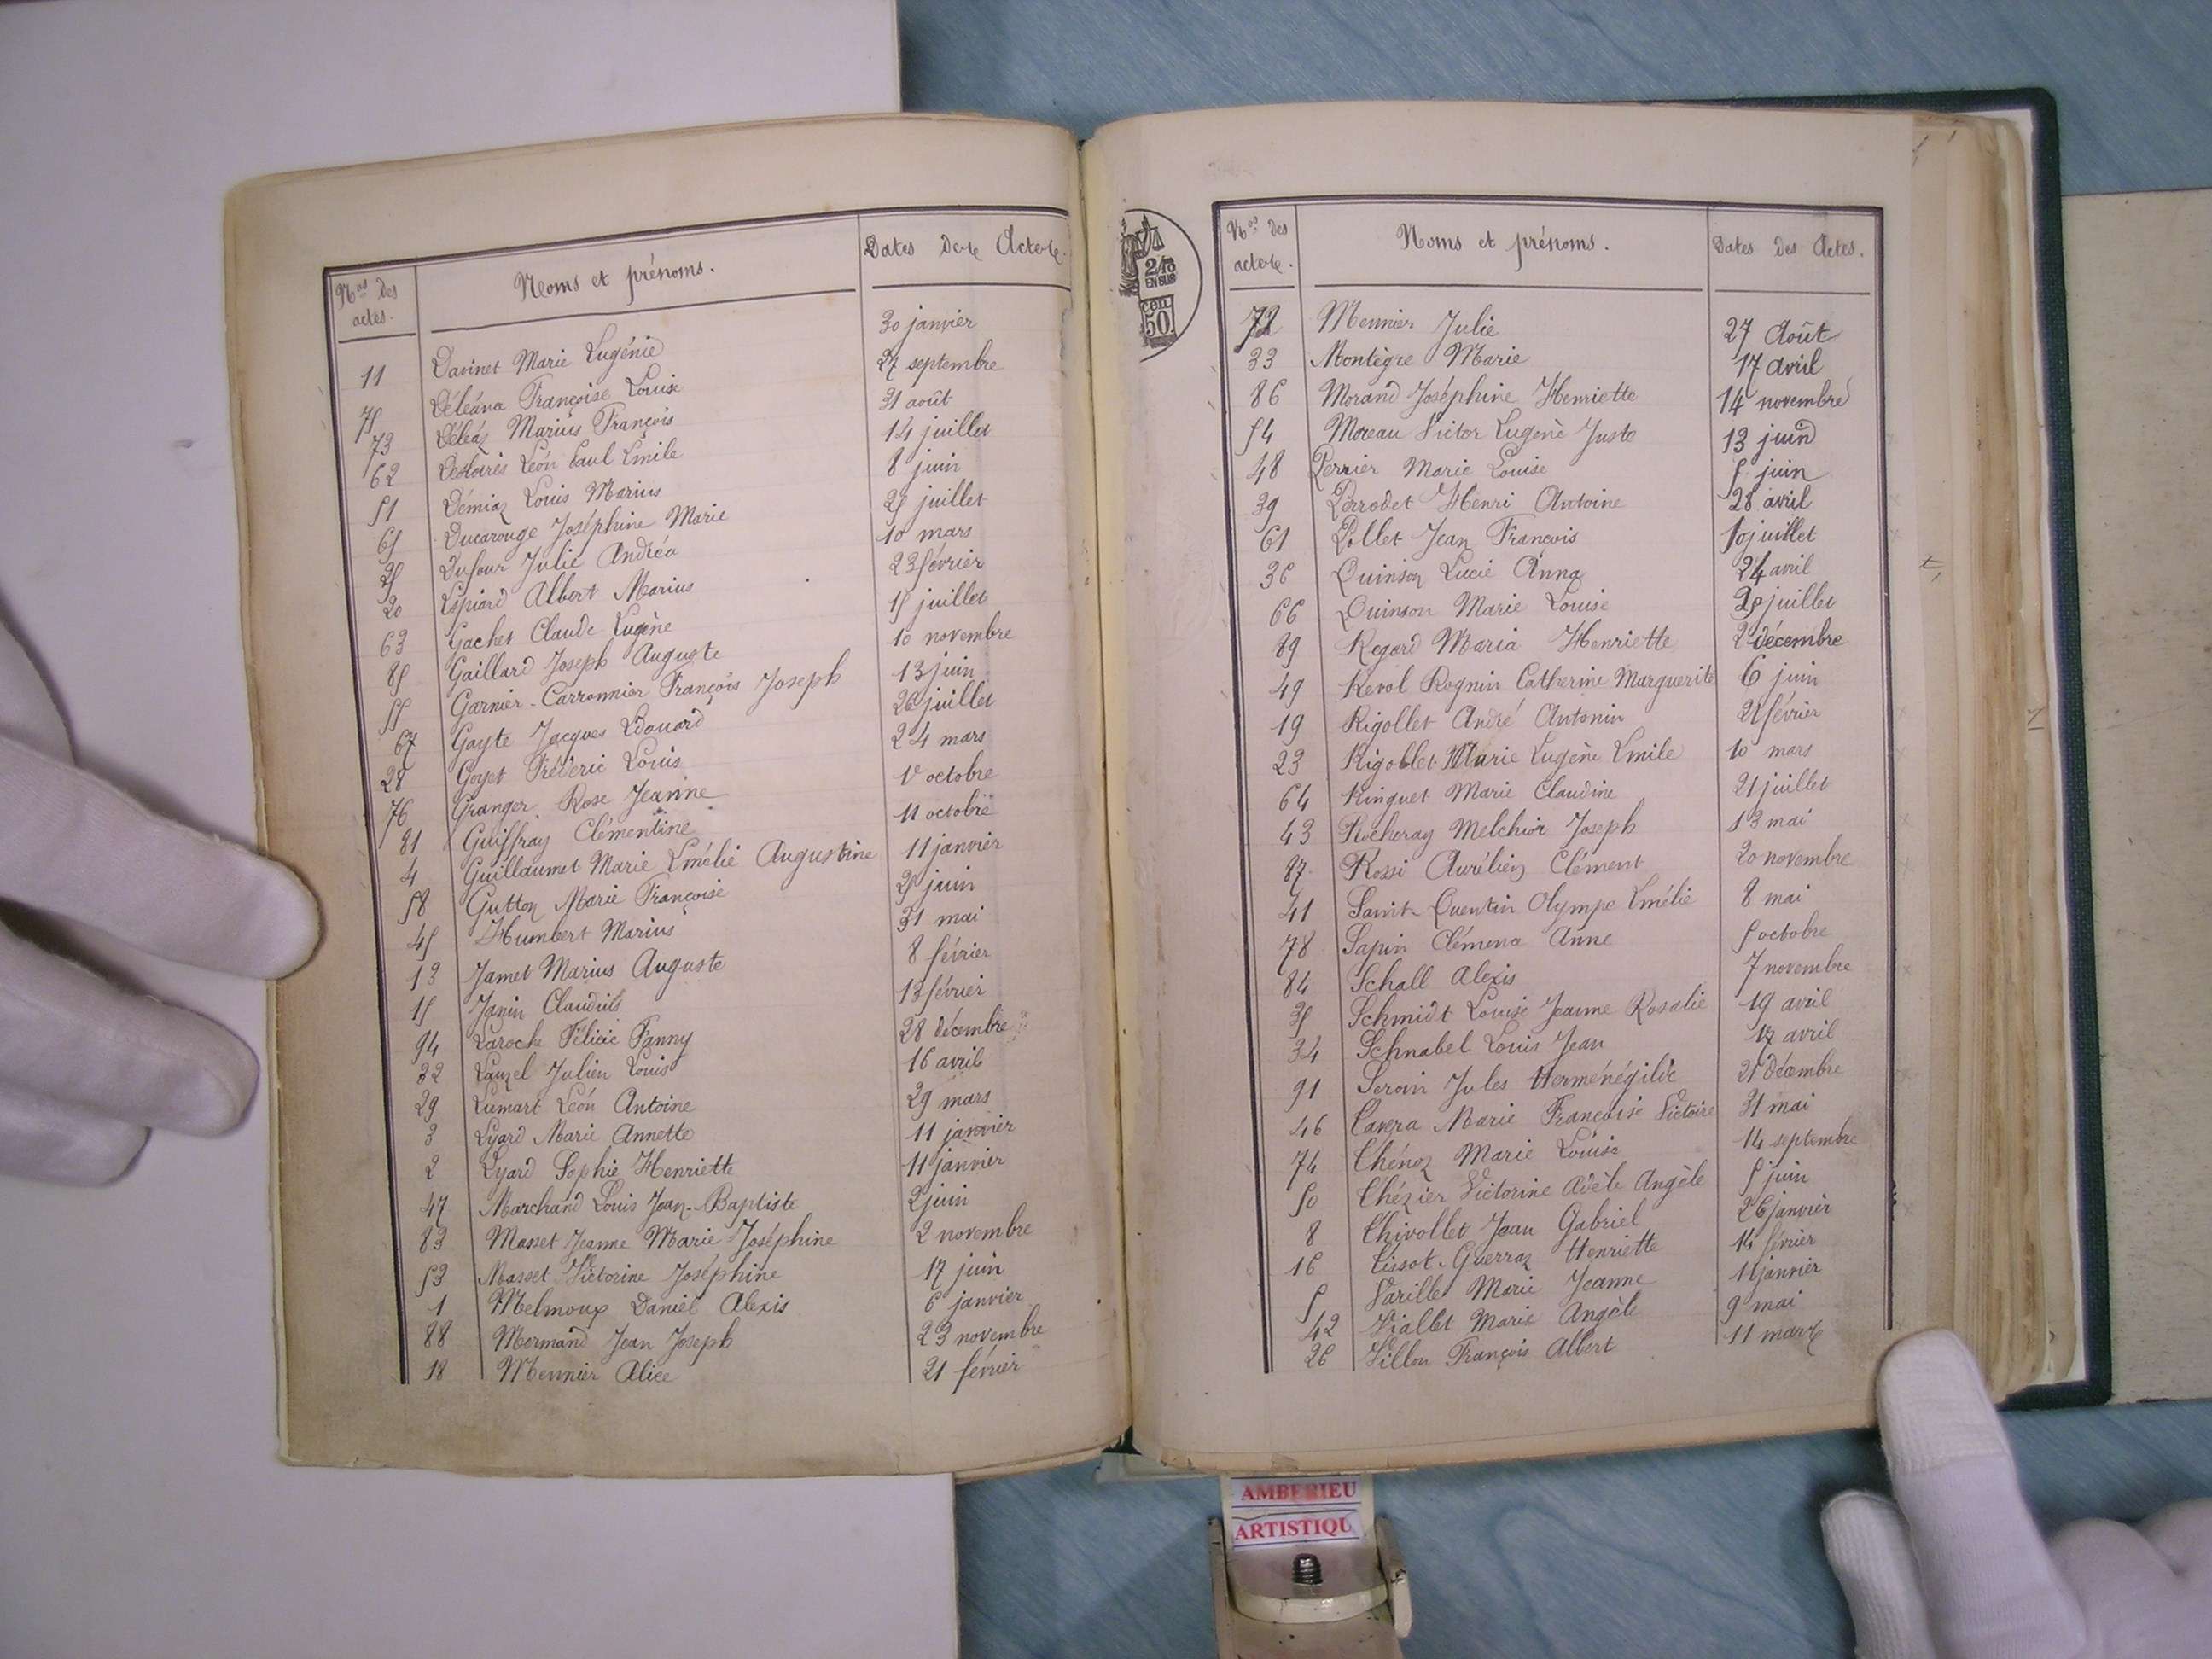 Nos des actes. Noms et prénoms. Dates des Actes.
11 Davinet Marie Eugénie 30 janvier
75 Déléana Françoise Louise 27 septembre
73 Déléaz Marius François 31 août
62 Léon Paul Emile 14 juillet
51 Démiaz Louis Marius 8 juin
65 Ducarouge Joséphine Marie 25 juillet
25 Dufour Julie Andréa 10 mars
20 Espiard Albert Marius 23 février
63 Gachet Claude Eugène 15 juillet
85 Gaillard Joseph Auguste 10 novembre
55 Garnier-Carronnier François Joseph 13 juin
67 Gayte Jacques Edouard 26 juillet
28 Goyet Fréderic Louis 24 mars
76 Granger Rose Jeanne 1er octobre
81 Guiffray Clémentine 11 octobre
4 Guillaumet Marie Emélie Augustine 11 janvier
58 Gutton Marie Françoise 25 juin
45 Humbert Marius 31 mai
13 Jamet Marius Auguste 8 février
15 Janin Claudius 13 février
94 Laroche Félicie Fanny 28 décembre
32 Lauzel Julien Louis 16 avril
29 Lumart Léon Antoine 29 mars
3 Lyard Marie Annette 11 janvier
2 Lyard Sophie Henriette 11 janvier
47 Marchand Louis Jean-Baptiste 2 juin
83 Masset Jeanne Marie Joséphine 2 novembre
53 Masset Victorine Joséphine 17 juin
1 Melmoux Daniel Alexis 6 janvier
88 Mermand Jean Joseph 23 novembre
18 Meunier Alice 21 février
2/10
EN SUS
cen
50
Nos des actes. Noms et prénoms. Dates des Actes.
72 Meunier Julie 27 Août
33 Montègre Marie 17 avril
86 Morand Joséphine Henriette 14 novembre
54 Moreau Victor Eugène Juste 13 juin
48 Perrier Marie Louise 5 juin
39 Perrodet Henri Antoine 28 avril
61 Pollet Jean François 10 juillet
36 Quinson Lucie Anna 24 avril
66 Quinson Marie Louise 25 juillet
89 Regard Maria Henriette 2 décembre
49 Revol Rognin Catherine Marguerite 6 juin
19 Rigollet André Antonin 22 février
23 Rigollet Marie Eugène Emile 10 mars
64 Ringuet Marie Claudine 21 juillet
43 Rocheray Melchior Joseph 13 mai
87 Rossi Aurélien Clément 20 novembre
41 Saint-Quentin Olympe Emélie 8 mai
78 Sapin Clémence Anne 5 octobre
84 Schall Alexis 7 novembre
35 Schmidt Louise Jeanne Rosalie 19 avril
34 Schnabel Louis Jean 17 avril
91 Seroin Jules Herménégilde 21 décembre
46 Tavera Marie Françoise Victoire 31 mai
74 Thénoz Marie Louise 14 septembre
50 Thézier Victorine Adèle Angèle 5 juin
8 Thivollet Jean Gabriel 26 janvier
16 Tissot-Guerraz Henriette 14 février
5 Varille Marie Jeanne 11 janvier
42 Viallet Marie Angèle 9 mai
26 Villon François Albert 11 mars
AMBERIEU
ARTISTIQU